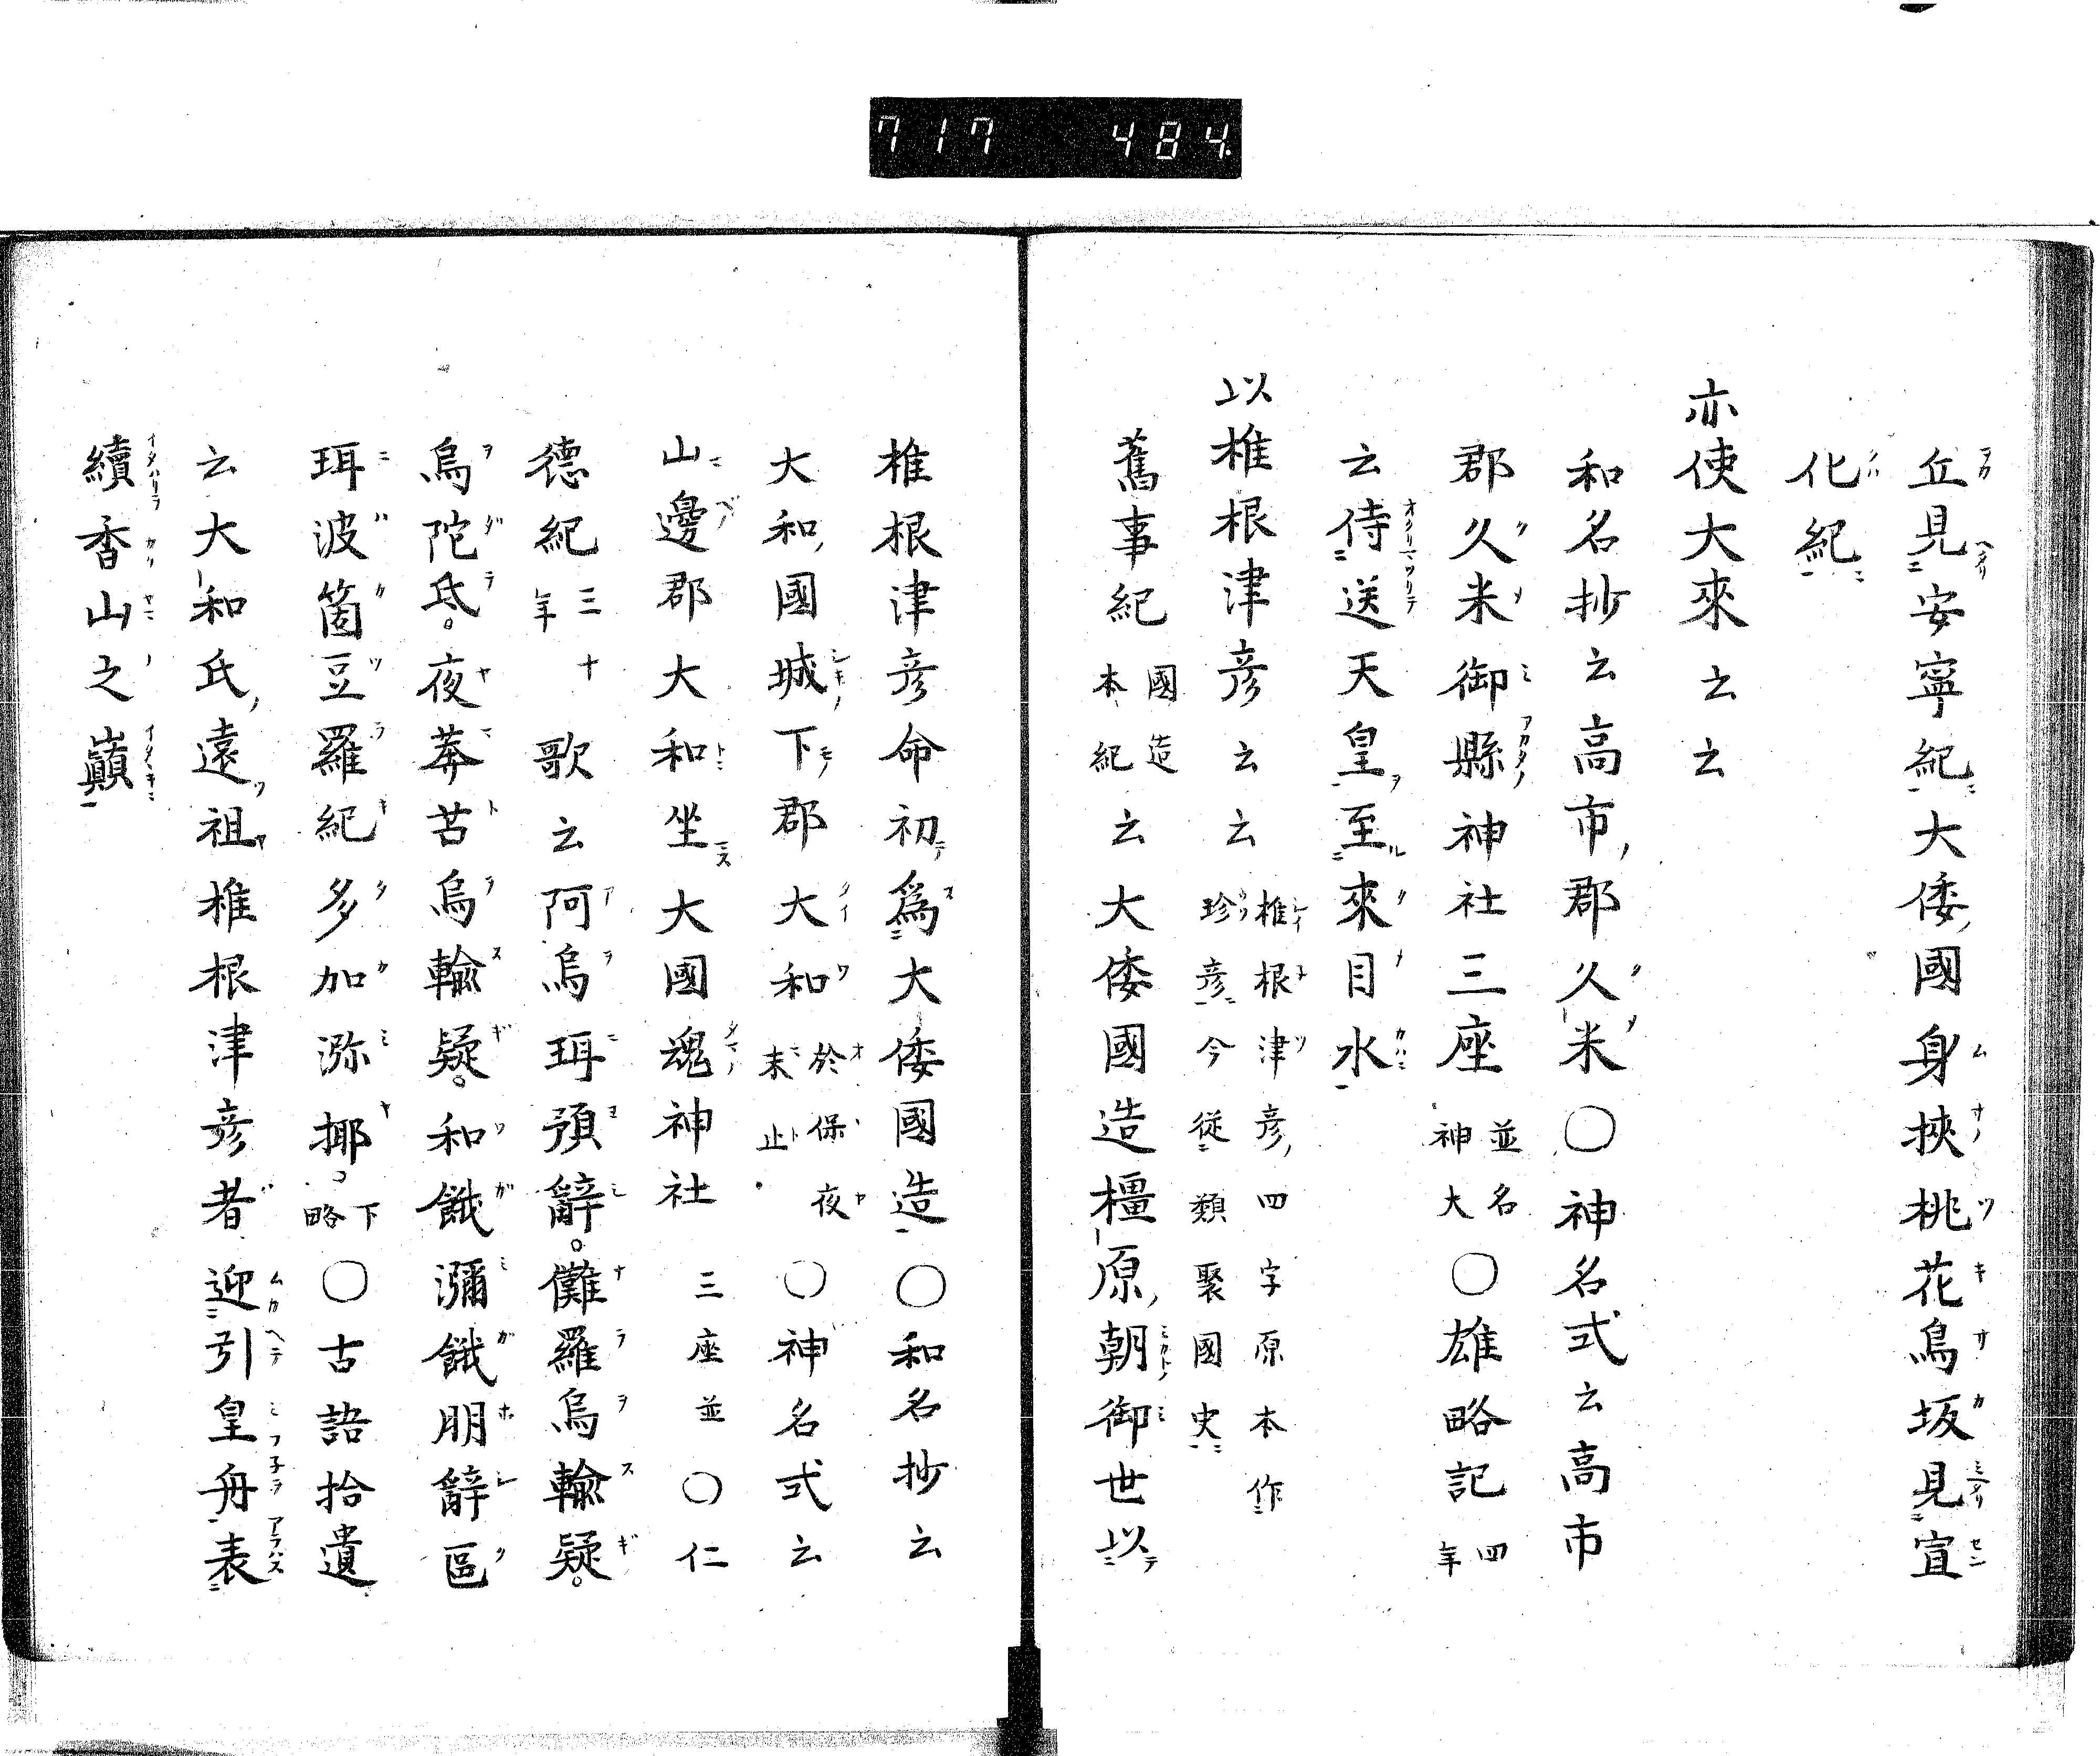 717 484
丘見安寧紀大倭國身挾桃花鳥坂見宣
化紀
亦使大來云云
和名抄云高市郡久米○神名式云高市
郡久米御縣神社三座並名神大○雄略記四年
云侍送天皇至來目水
以椎根津彦云云椎根津彦四字原本作珍彦今從類聚國史
舊事紀國造本紀云大倭國造橿原朝御世以
椎根津彦命初爲大倭國造○和名抄云
大和國城下郡大和於保夜末止○神名式云
山邊郡大和坐大國魂神社三座並○仁
德紀三十年歌云阿烏珥預辭。儺羅烏輸疑。
烏陀氐。夜莽苫烏輸疑。和餓瀰餓朋辭區
珥波箇豆羅紀多加弥揶。下略○古語拾遺
云大和氏遠祖椎根津彦者迎引皇舟表
續香山之巓